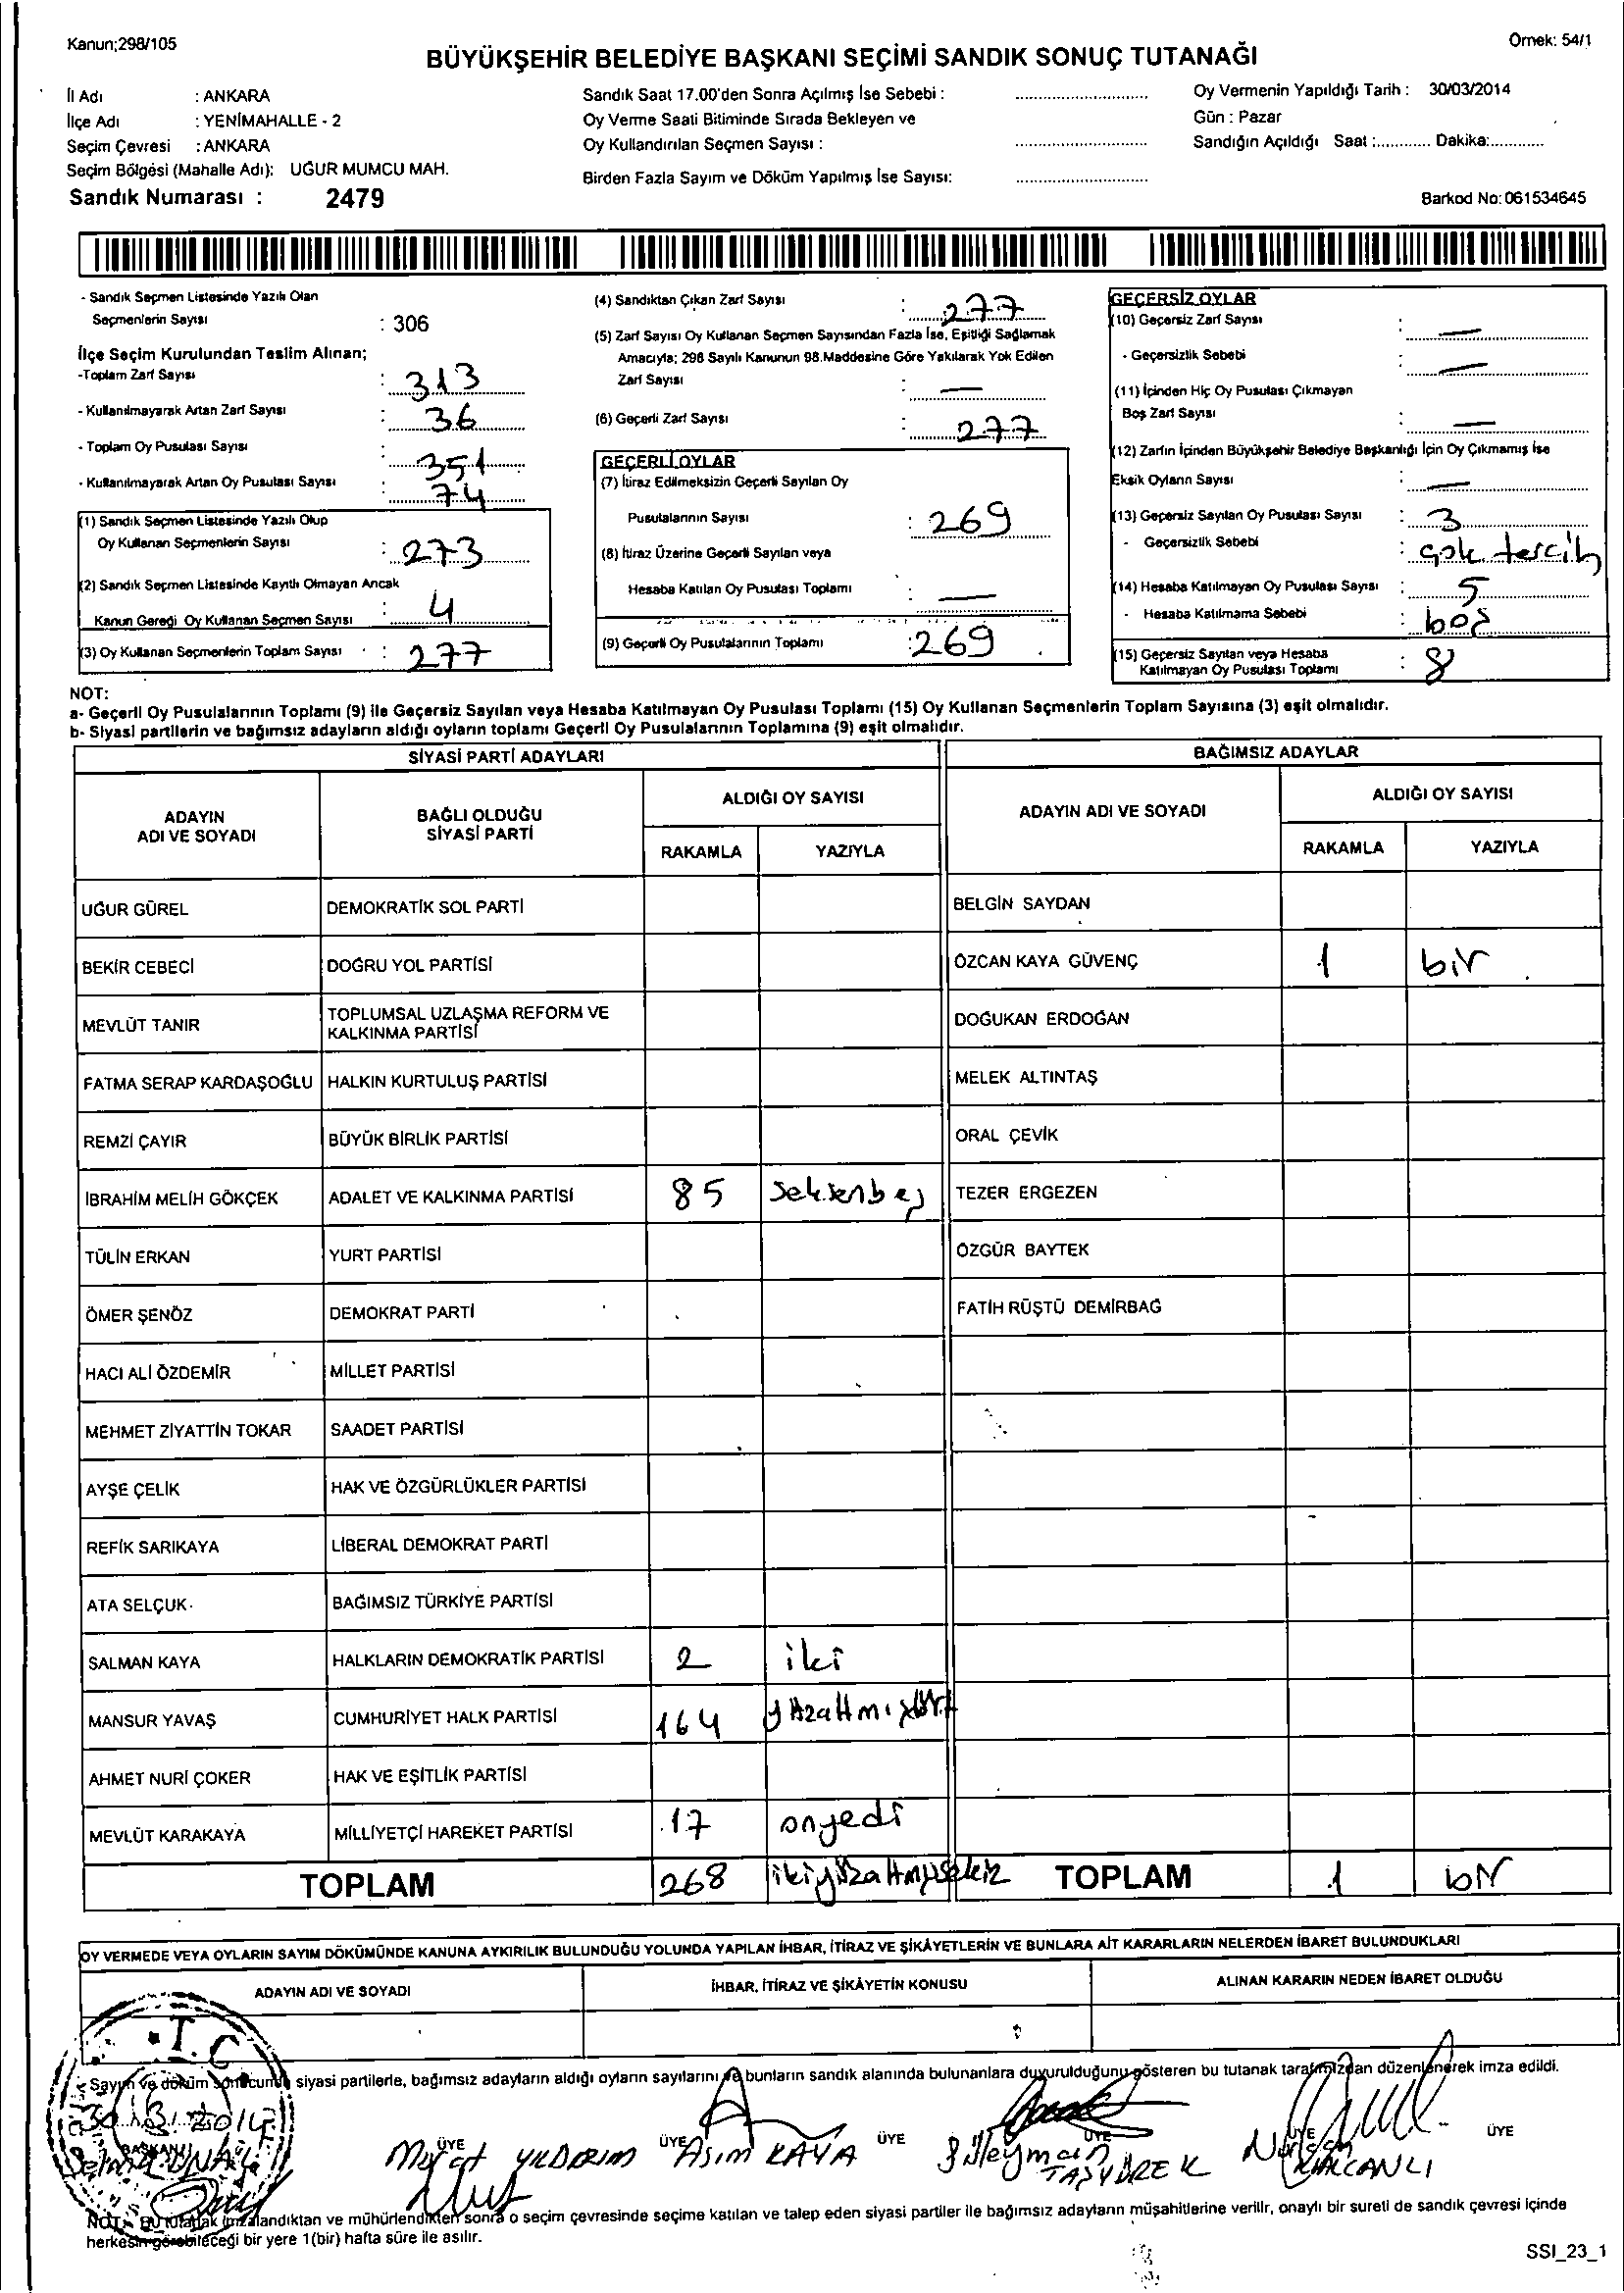 Kanun;298/105
Örnek: 54/1
BÜYÜKŞEHİR BELEDİYE BAŞKANI SEÇİMİ SANDIK SONUÇ TUTANAĞI
İl Adı : ANKARA
İlçe Adı : YENİMAHALLE - 2
Seçim Çevresi : ANKARA
Seçim Bölgesi (Mahalle Adı): UĞUR MUMCU MAH.
Sandık Numarası : 2479
Sandık Saat 17.00'den Sonra Açılmış İse Sebebi :
Oy Verme Saati Bitiminde Sırada Bekleyen ve
Oy Kullandırılan Seçmen Sayısı :
Birden Fazla Sayım ve Döküm Yapılmış İse Sayısı:
Oy Vermenin Yapıldığı Tarih : 30/03/2014
Gün : Pazar
Sandığın Açıldığı Saat :............ Dakika:............
Barkod No: 061534645
- Sandık Seçmen Listesinde Yazılı Olan
Seçmenlerin Sayısı : 306
İlçe Seçim Kurulundan Teslim Alınan;
-Toplam Zarf Sayısı : 313
- Kullanılmayarak Artan Zarf Sayısı : 36
- Toplam Oy Pusulası Sayısı : 351
- Kullanılmayarak Artan Oy Pusulası Sayısı : 74
(1) Sandık Seçmen Listesinde Yazılı Olup
Oy Kullanan Seçmenlerin Sayısı : 273
(2) Sandık Seçmen Listesinde Kayıtlı Olmayan Ancak
Kanun Gereği Oy Kullanan Seçmen Sayısı : 4
(3) Oy Kullanan Seçmenlerin Toplam Sayısı : 277
(4) Sandıktan Çıkan Zarf Sayısı : 277
(5) Zarf Sayısı Oy Kullanan Seçmen Sayısından Fazla İse, Eşitliği Sağlamak
Amacıyla; 298 Sayılı Kanunun 98.Maddesine Göre Yakılarak Yok Edilen
Zarf Sayısı : —
(6) Geçerli Zarf Sayısı : 277
GEÇERLİ OYLAR
(7) İtiraz Edilmeksizin Geçerli Sayılan Oy
Pusulalarının Sayısı : 269
(8) İtiraz Üzerine Geçerli Sayılan veya
Hesaba Katılan Oy Pusulası Toplamı : —
(9) Geçerli Oy Pusulalarının Toplamı : 269
GEÇERSİZ OYLAR
(10) Geçersiz Zarf Sayısı : —
- Geçersizlik Sebebi : —
(11) İçinden Hiç Oy Pusulası Çıkmayan
Boş Zarf Sayısı : —
(12) Zarfın İçinden Büyükşehir Belediye Başkanlığı İçin Oy Çıkmamış İse
Eksik Oyların Sayısı : —
(13) Geçersiz Sayılan Oy Pusulası Sayısı : 3
- Geçersizlik Sebebi : çok tercih
(14) Hesaba Katılmayan Oy Pusulası Sayısı : 5
- Hesaba Katılmama Sebebi : boş
(15) Geçersiz Sayılan veya Hesaba
Katılmayan Oy Pusulası Toplamı : 8
NOT:
a- Geçerli Oy Pusulalarının Toplamı (9) ile Geçersiz Sayılan veya Hesaba Katılmayan Oy Pusulası Toplamı (15) Oy Kullanan Seçmenlerin Toplam Sayısına (3) eşit olmalıdır.
b- Siyasi partilerin ve bağımsız adayların aldığı oyların toplamı Geçerli Oy Pusulalarının Toplamına (9) eşit olmalıdır.
SİYASİ PARTİ ADAYLARI
ADAYIN
ADI VE SOYADI
BAĞLI OLDUĞU
SİYASİ PARTİ
ALDIĞI OY SAYISI
RAKAMLA YAZIYLA
UĞUR GÜREL DEMOKRATİK SOL PARTİ
BEKİR CEBECİ DOĞRU YOL PARTİSİ
MEVLÜT TANIR TOPLUMSAL UZLAŞMA REFORM VE
KALKINMA PARTİSİ
FATMA SERAP KARDAŞOĞLU HALKIN KURTULUŞ PARTİSİ
REMZİ ÇAYIR BÜYÜK BİRLİK PARTİSİ
İBRAHİM MELİH GÖKÇEK ADALET VE KALKINMA PARTİSİ 85 seksenbeş
TÜLİN ERKAN YURT PARTİSİ
ÖMER ŞENÖZ DEMOKRAT PARTİ
HACI ALİ ÖZDEMİR MİLLET PARTİSİ
MEHMET ZİYATTİN TOKAR SAADET PARTİSİ
AYŞE ÇELİK HAK VE ÖZGÜRLÜKLER PARTİSİ
REFİK SARIKAYA LİBERAL DEMOKRAT PARTİ
ATA SELÇUK BAĞIMSIZ TÜRKİYE PARTİSİ
SALMAN KAYA HALKLARIN DEMOKRATİK PARTİSİ 2 iki
MANSUR YAVAŞ CUMHURİYET HALK PARTİSİ 164 yüzaltmışdört
AHMET NURİ ÇOKER HAK VE EŞİTLİK PARTİSİ
MEVLÜT KARAKAYA MİLLİYETÇİ HAREKET PARTİSİ 17 onyedi
TOPLAM 268 ikiyüzaltmışsekiz
BAĞIMSIZ ADAYLAR
ADAYIN ADI VE SOYADI
ALDIĞI OY SAYISI
RAKAMLA YAZIYLA
BELGİN SAYDAN
ÖZCAN KAYA GÜVENÇ 1 bir
DOĞUKAN ERDOĞAN
MELEK ALTINTAŞ
ORAL ÇEVİK
TEZER ERGEZEN
ÖZGÜR BAYTEK
FATİH RÜŞTÜ DEMİRBAĞ
TOPLAM 1 bir
OY VERMEDE VEYA OYLARIN SAYIM DÖKÜMÜNDE KANUNA AYKIRILIK BULUNDUĞU YOLUNDA YAPILAN İHBAR, İTİRAZ VE ŞİKÂYETLERİN VE BUNLARA AİT KARARLARIN NELERDEN İBARET BULUNDUKLARI
ADAYIN ADI VE SOYADI İHBAR, İTİRAZ VE ŞİKÂYETİN KONUSU ALINAN KARARIN NEDEN İBARET OLDUĞU
T.C.
Sayım ve döküm sonucunda siyasi partilerle, bağımsız adayların aldığı oyların sayılarını ve bunların sandık alanında bulunanlara duyurulduğunu gösteren bu tutanak tarafımızdan düzenlenerek imza edildi.
30.3.2014
BAŞKAN ÜYE ÜYE ÜYE ÜYE ÜYE ÜYE
Murat YILDIRIM Asım KAYA Süleyman TAŞYÜREK
NOT: Bu tutanak imzalandıktan ve mühürlendikten sonra o seçim çevresinde seçime katılan ve talep eden siyasi partiler ile bağımsız adayların müşahitlerine verilir, onaylı bir sureti de sandık çevresi içinde
herkesin görebileceği bir yere 1(bir) hafta süre ile asılır.
SSI_23_1